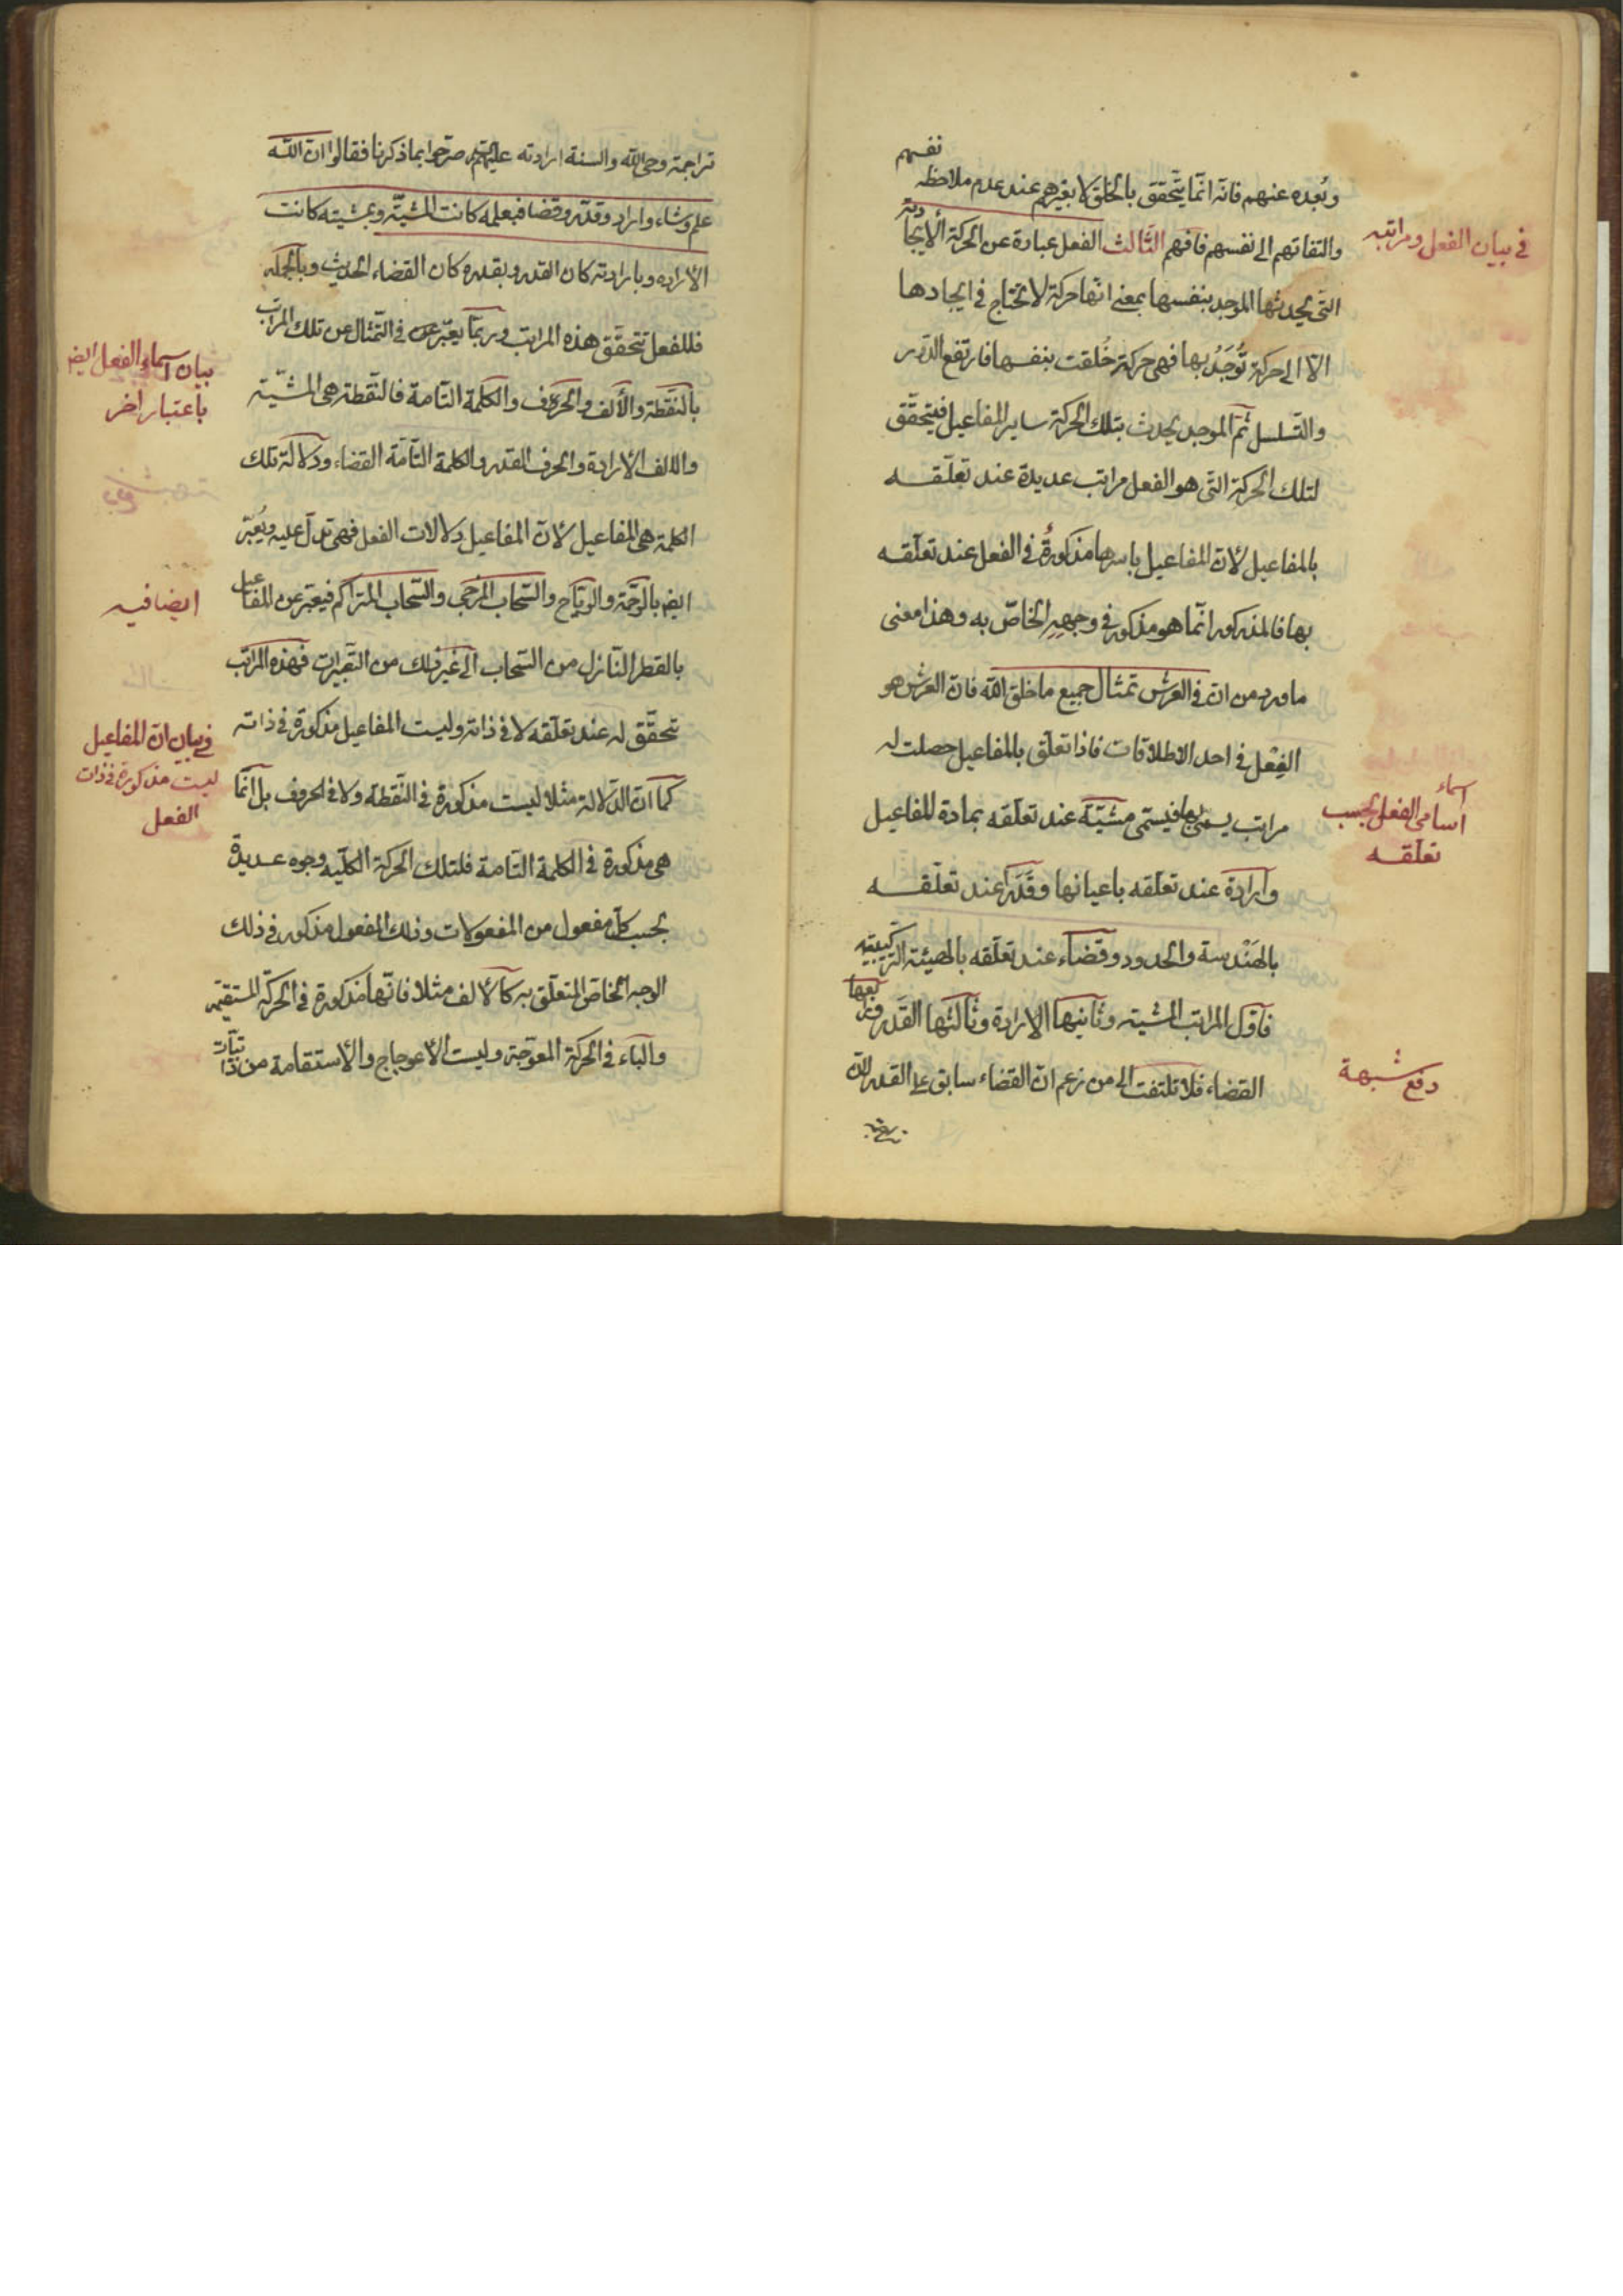 وبُعده عنهم فانّه انّما يتحقق بالخلق لا بغيرهم عند عدم ملاحظة نفسهم
والتفاتهم الى نفسهم فافهم الثالث الفعل عبارة عن الحركة الايجادية
التى يحدثها الموجد بنفسها بمعنى انها حركة لا تحتاج فى ايجادها
الّا الى حركة تُوجَدُ بها فهى حركة خُلقت بنفسها فارتفع الدّور
والتّسلسل ثمّ الموجد يحدث بتلك الحركة ساير المفاعيل فيتحقّق
لتلك الحركة التى هو الفعل مراتب عديدة عند تعلّقه
بالمفاعيل لأنّ المفاعيل باسرها مذكورةٌ فى الفعل عند تعلّقه
بها فالمذكور انّما هو مذكور فى وجههِ الخاصّ به وهذا معنى
ما ورد من ان فى العرش تمثال جميع ما خلق الله فانّ العرش هو
الفِعْل فى احد الاطلاقات فاذا تعلّق بالمفاعيل حصلت له
مراتب يسمى بها فيسمّى مشيّة عند تعلّقه بمادة المفاعيل
وارادة عند تعلّقه باعيانها وقَدَراً عند تعلّقه
بالهَنْدسة والحدود وقضاء عند تعلّقه بالهيئة التركيبية
فاوّل المراتب المشية وثانيها الارادة وثالثها القَدر ورابعها
القضاء فلا تلتفت الى من زعم انّ القضاء سابق على القدر لانّ
فى بيان الفعل ومراتبه
اسماء
اسامى الفعل بحسب
تعلّقه
دفع شبهة
تراجمة وحى الله والسنة ارادته عليهم صرّحوا بما ذكرنا فقالوا انّ الله
علم وشاء واراد وقدّر وقضا فبعلمه كانت المشيّة وبمشيته كانت
الارادة وبارادته كان القدر وبقدره كان القضاء الحديث وبالجملة
فللفعل تتحقّق هذه المراتب وربّما يعبّر عن فى التّمثال عن تلك المراتب
بالنّقطة والألف والحروف والكلمة التامة فالنّقطة هى المشيّة
والالف الارادة والحرف القدر والكلمة التّامّة القضاء ودلالة تلك
الكلمة هى المفاعيل لأنّ المفاعيل دلالات الفعل فهى تدلّ عليه ويُعبّر
ايض بالرحمة والرياح والسّحاب المزجى والسّحاب المتراكم فيعبّر عن المفاعيل
بالقطر النّازل من السّحاب الى غير ذلك من التعبيرات فهذه المراتب
تتحقّق له عند تعلّقه لا فى ذاته وليست المفاعيل مذكورة فى ذاته
كما انّ الدّلالة مثلا ليست مذكورة فى النّقطة ولا فى الحروف بل انّما
هى مذكورة فى الكلمة التّامة فلتلك الحركة الكلّية وجوه عديدة
بحسب كلّ مفعول من المفعولات وذلك المفعول مذكور فى ذلك
الوجه الخاصّ المتعلّق به كالألف مثلا فانّها مذكورة فى الحركة المستقيمة
والباء فى الحركة المعوّجة وليست الاعوجاج والاستقامة من ذاتيّات
بيان اسماء الفعل ايض
باعتبار اخر
ايضا فيه
فى بيان انّ المفاعيل
ليست مذكورة فى ذات
الفعل